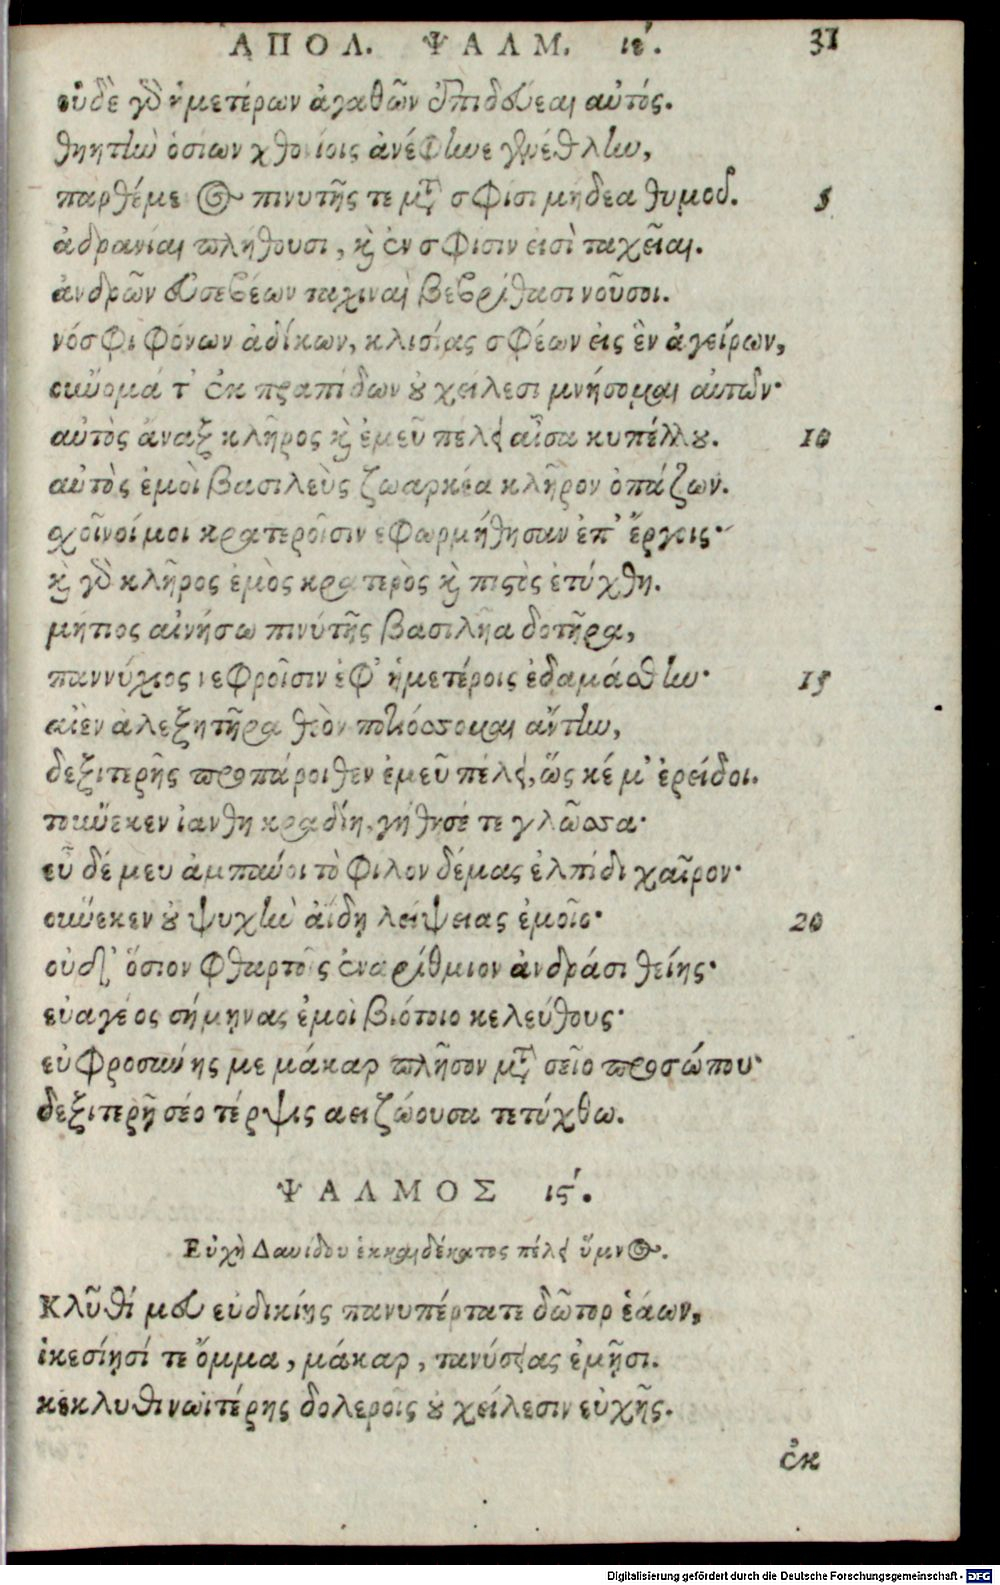 ΑΠΟΛ. ΨΑΛΜ. ιέ. 31
οὐδὲ γὸ ἡμετέρων ἀγαθῶν ἐπιδεύεαι αὐτός.
θηητὴν ὁσίων χθονίοις ἀνέφηνε γενέθλην,
παρθέμενος πινυτῆς τε μετὰ σφίσι μήδεα θυμοῦ. 5
ἀδρανίαι πλήθουσι, καὶ ἐν σφίσιν εἰσὶ ταχεῖαι.
ἀνδρῶν εὐσεβέων ταχιναὶ βεβρίθασι νοῦσοι.
νόσφι φόνων ἀδίκων, κλισίας σφέων εἰς ἓν ἀγείρων,
οὐνομά τ' ἐκ πραπίδων οὐ χείλεσι μνήσομαι αὐτῶν·
αὐτὸς ἄναξ κλῆρος καὶ ἐμεῦ πέλει αἶσα κυπέλλου. 10
αὐτὸς ἐμοὶ βασιλεὺς ζωαρκέα κλῆρον ὀπάζων.
σχοῖνοί μοι κρατεροῖσιν ἐφωρμήθησαν ἐπ' ἔργοις·
καὶ γὸ κλῆρος ἐμὸς κρατερὸς καὶ πιστὸς ἐτύχθη.
μήτιος αἰνήσω πινύτῆς βασιλῆα δοτῆρα,
παννύχιος νεφροῖσιν ἐφ' ἡμετέροις ἐδαμάσθην· 15
αἰὲν ἀλεξητῆρα θεὸν ποτιόσσομαι ἄντην,
δεξιτερῆς προπάροιθεν ἐμεῦ πέλει, ὥς κέ μ' ἐρείδοι.
τοὔνεκεν ἰάνθη κραδίη, γήθησέ τε γλῶσσα·
εὖ δέ μευ ἀμπαύοι τὸ φίλον δέμας ἐλπίδι χαῖρον·
οὕνεκεν οὐ ψυχὴν ἀΐδη λείψειας ἐμοῖο· 20
οὐδ' ὅσιον φθαρτοῖς ἐναρίθμιον ἀνδράσι θείης·
εὐαγέος σήμηνας ἐμοὶ βιότοιο κελεύθους·
εὐφροσύνης με μάκαρ πλῆσον μετὰ σεῖο προσώπου·
δεξιτερῇ σέο τέρψις ἀειζώουσα τετύχθω.
ΨΑΛΜΟΣ ις΄.
Εὐχὴ Δαυίδου ἑκκαιδέκατος πέλει ὕμνος.
Κλῦθί μευ εὐδικίης πανυπέρτατε δῶτορ ἑάων,
ἱκεσίῃσί τε ὄμμα, μάκαρ, τανύσειας ἐμῇσι.
κέκλυθι νωιτέρης δολεροῖς οὐ χείλεσιν εὐχῆς.
ἐκ
Digitalisierung gefördert durch die Deutsche Forschungsgemeinschaft - DFG